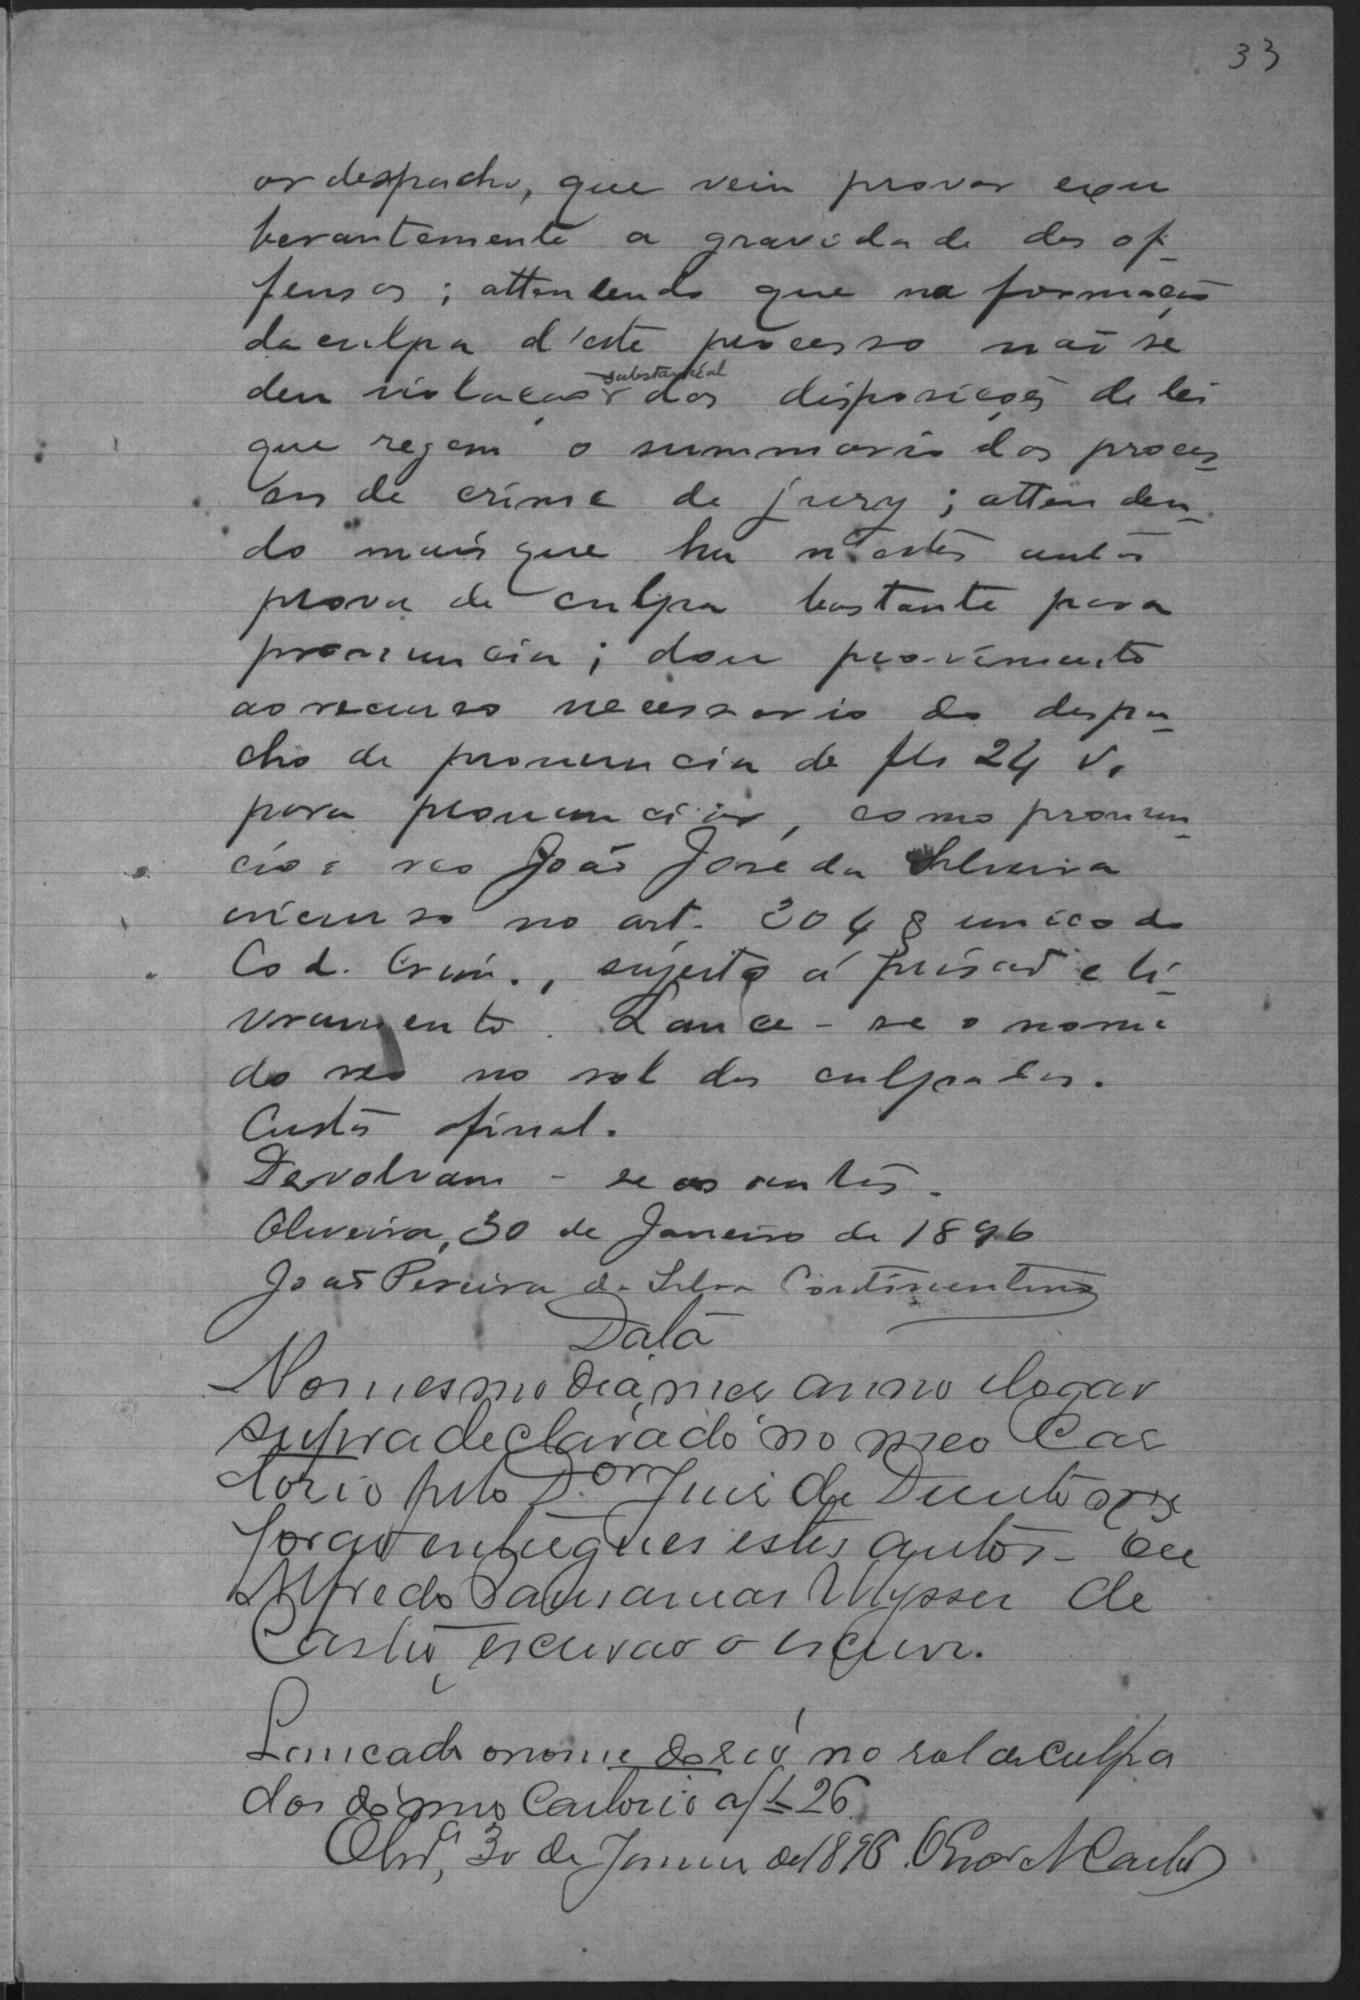 33
or despacho, que vein provar exu
berantemente a gravidade das of-
fensas; attendendo que na formação
da culpa d'este processo não se
deu violação substancial das disposições de lei
que regem o summario dos proces-
sos de crime de jury; atten den-
do mais que ha n'estes autos
prova de culpa bastante para
pronuncia; dou provimento
ao recurso necessario do despa-
cho de pronuncia de fls 24 v.
para pronunciar, como pronun-
cio o reo João José da Silveira
incurso no art. 304 § unico do
Cod. Crim., sujeito á prisão e li-
vramento. Lance-se o nome
do reo no rol dos culpados.
Custas afinal.
Devolvam-se os autos.
Oliveira, 30 de Janeiro de 1896
João Pereira da Silva Continentino
Data
No mesmo dia, mez anno e logar
supra declarado no meo Car
torio pelo D.or Juis de Direito
forão entregues estes autos. Eu
Alfredo Ulysses de
Castro, escrivão o escrevi.
Lancado o nome do reo no rol de culpa
dos do meo Cartorio a fls 26
Olivª, 30 de Janeiro de 1896. O Escr